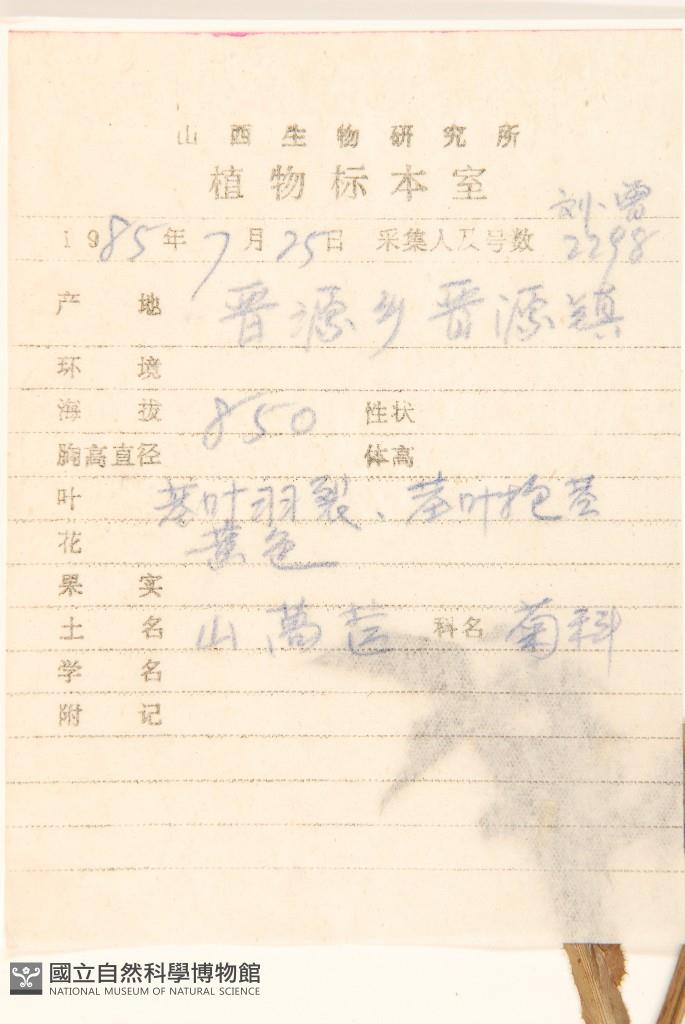 山西生物研究所
植物标本室
刘、曾
1985年7月25日 采集人及号数 2298
产地 晋源乡晋源镇
环境
海拔 850 性状
胸高直径 体高
叶 基叶羽裂、茎叶抱茎
花 黄色
果实
土名 山萵苣 科名 菊科
学名
附记
國立自然科學博物館
NATIONAL MUSEUM OF NATURAL SCIENCE